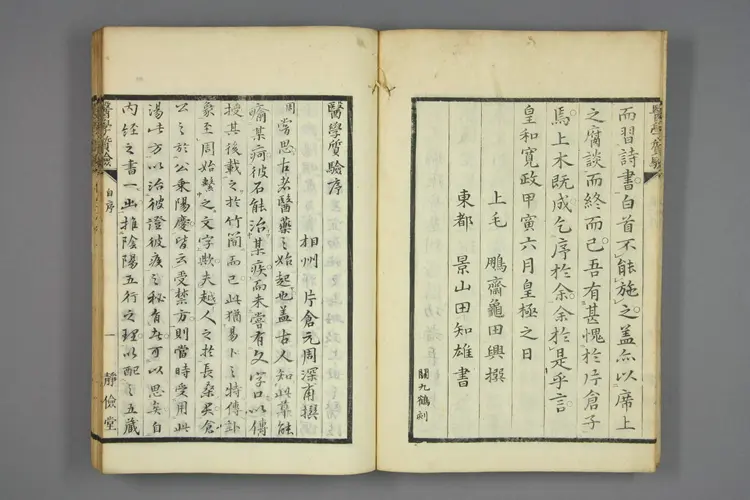 醫學質驗
而習詩書白首不能施之蓋亦以席上
之腐談而終而已吾有甚愧於片倉子
焉上木既成乞序於余余於是乎言
皇和寬政甲寅六月皇極之日
上毛 鵬齋龜田興撰
東都 景山田知雄書
關九鶴刻
醫學質驗序
相州 片倉元周深甫撰
周嘗思古者醫藥之始起也蓋古人知此草能
瘉某痾彼石能治某疾而未嘗有文字口以傳
授其後載之於竹簡而已此猶易卜之特傳卦
象至周始繫之文字歟夫越人之於長桑君倉
公之於公乘陽慶皆云受禁方則當時受用此
湯此方以治彼證彼疾之秘有在可以思矣自
內經之書一出推陰陽五行之理以配之五藏
醫學質驗
自序
一
靜儉堂